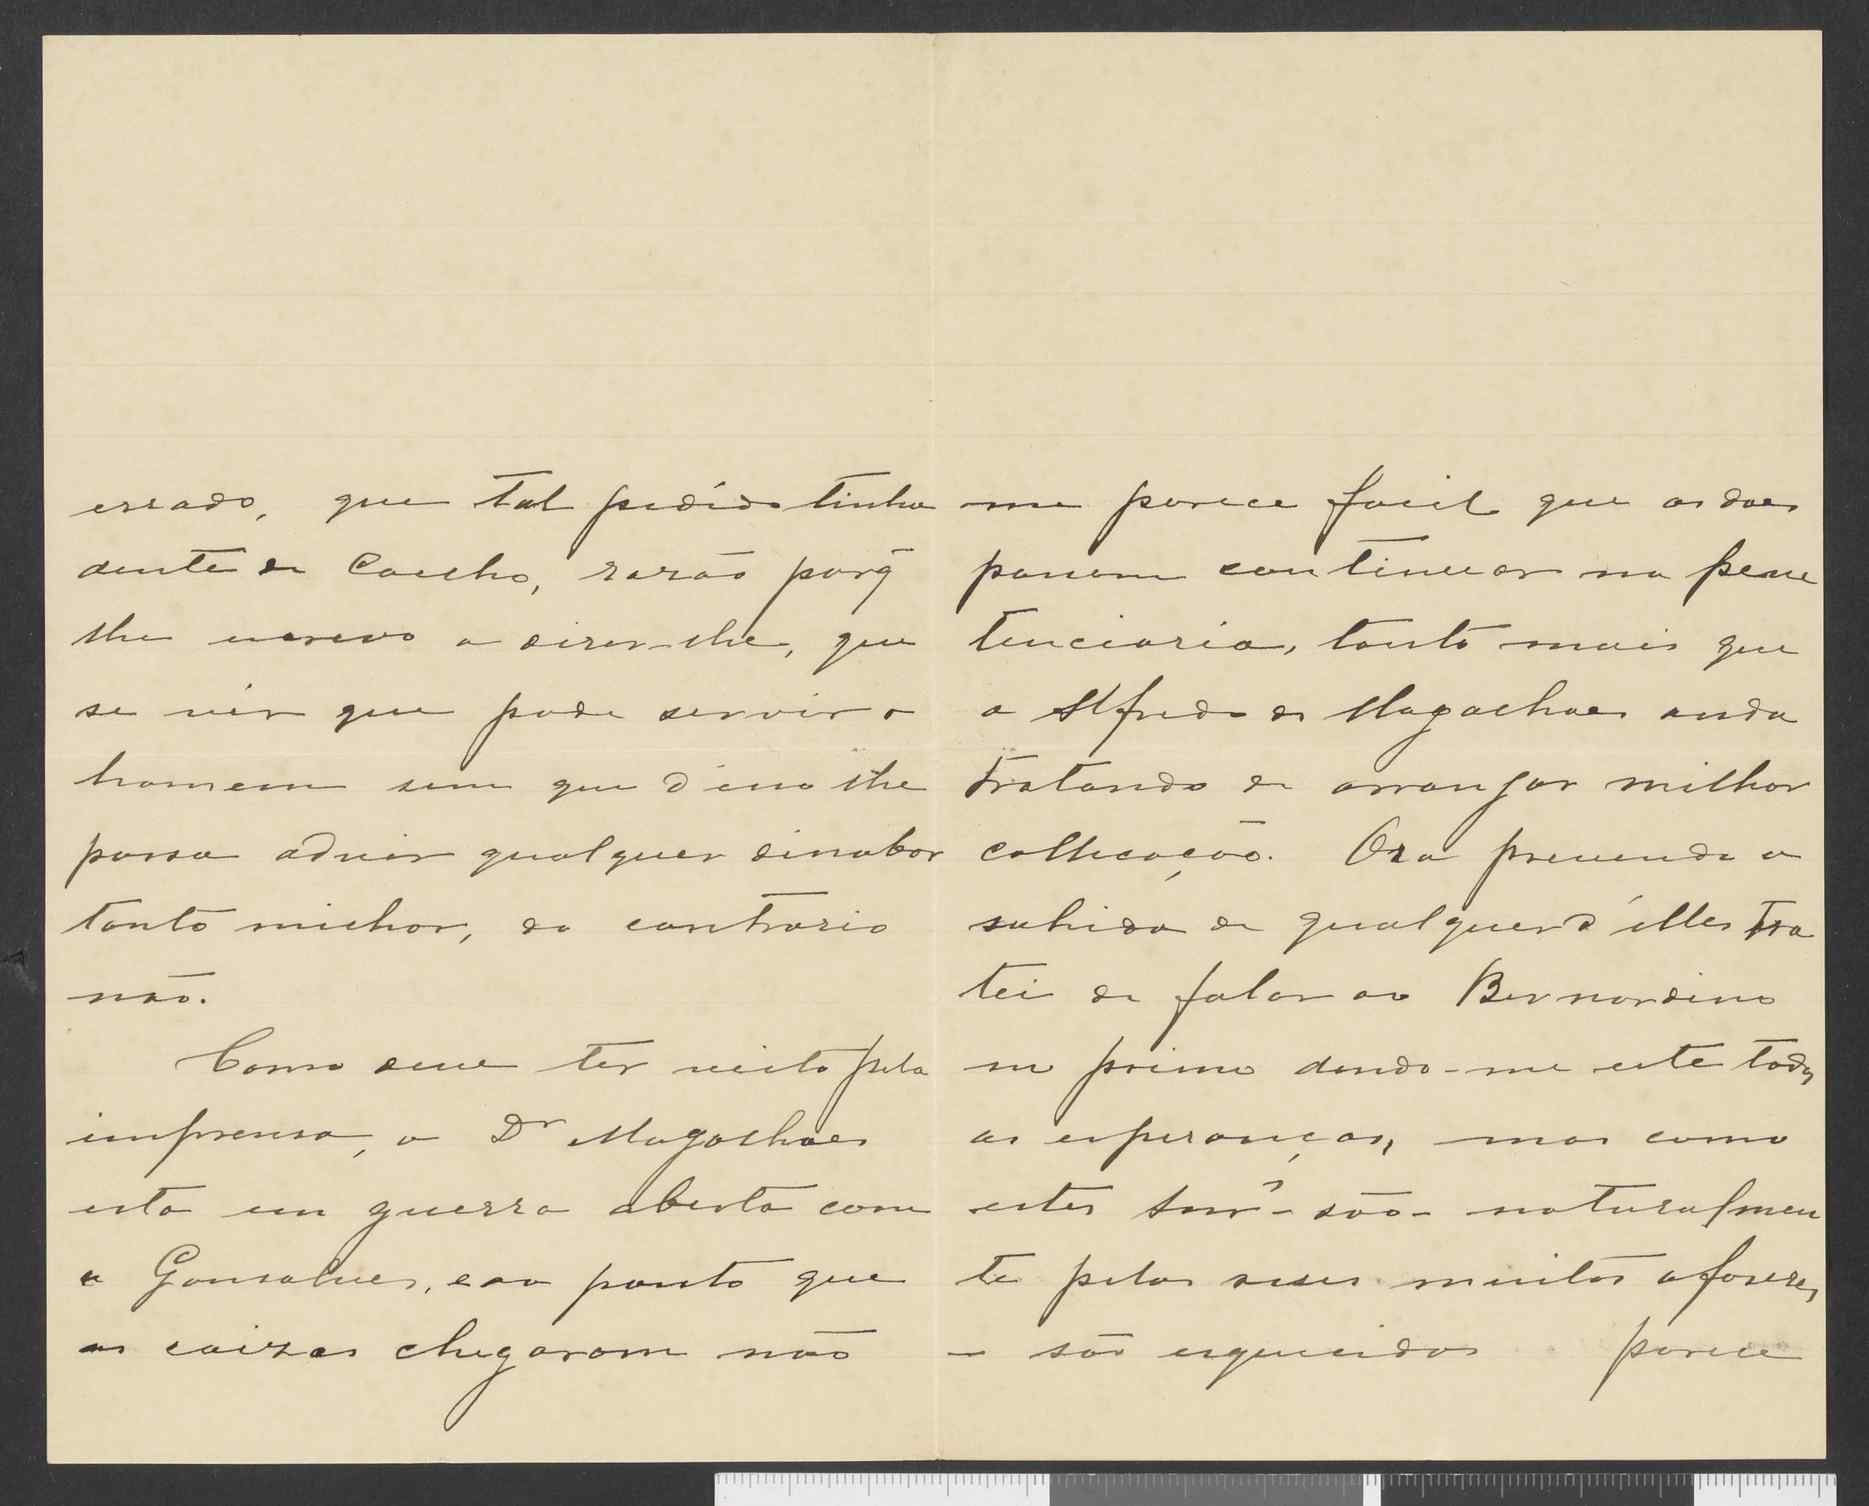 errado, que tal pedido tinha
dente de Coelho, rasão porq̃
lhe escrevo a dizer-lhe, que
se vir que pode servir o
homem sem que d'isso lhe
possa advir qualquer dissabor
tanto milhor, do contrario
não.
Como deve ter visto pela
imprensa, o Dr Magalhães
esta em guerra aberta com
o Gonsalves, e ao ponto que
as coizas chegaram não
me parece facil que os dois
possam continuar na peni
tenciaria, tanto mais que
o Alfredo de Magalhães anda
tratando de arranjar milhor
collocação. Ora prevendo a
sahida de qualquer d'elles tra
tei de falar ao Bernardino
no primo dando-me este todas
as esperanças, mas como
estes Snrs - são - naturalmen
te pelos seus muitos afazeres
- são esquecidos parece